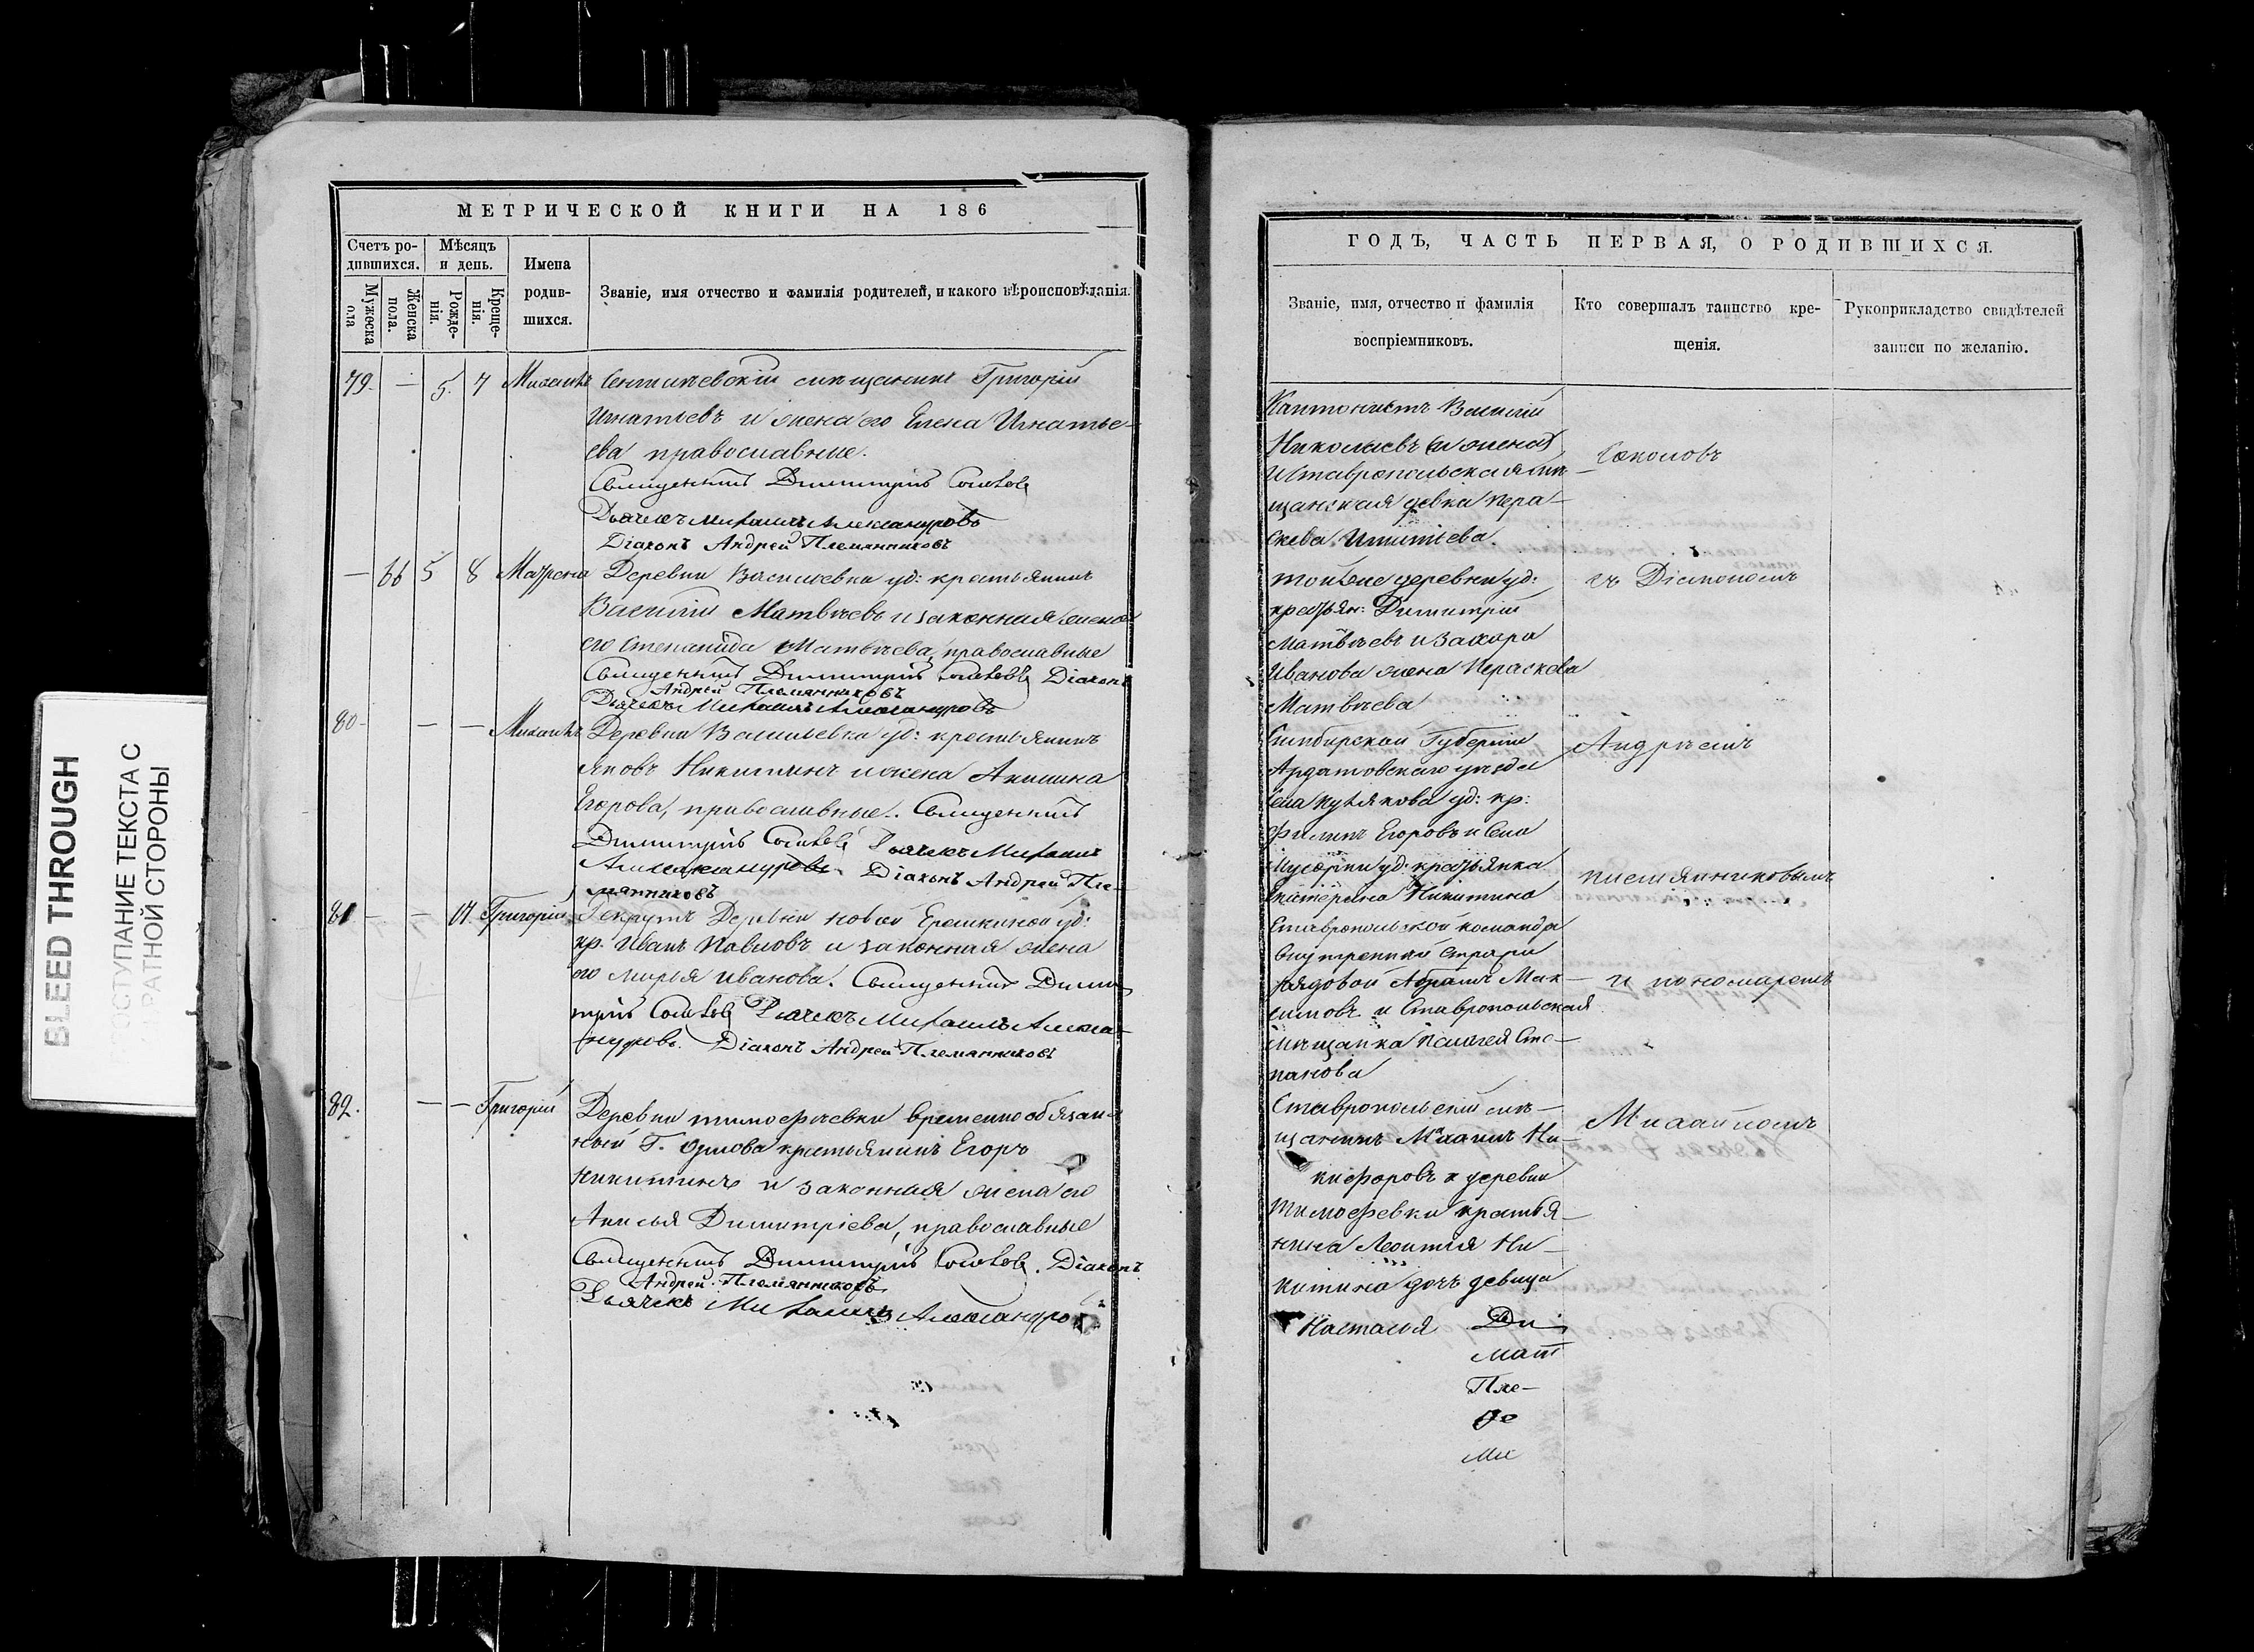 BLEED THROUGH
ВЫСТУПАНИЕ ТЕКСТА С
ОБРАТНОЙ СТОРОНЫ
МЕТРИЧЕСКОЙ КНИГИ НА 186
Счетъ ро-
дившихся.
Мѣсяцъ
и день.
Мужеска
пола
Женска
пола.
Рожде-
нія.
Креще-
нія.
Имена
родив-
шихся.
Званіе, имя отчество и фамилія родителей, и какого вѣроисповѣданія.
79. — 5. 7 Михаилъ мѣщанинъ Григорій
Игнатьевъ и жена его Елена Игнатье-
ева православные.
Священникъ Димитрій
Дьячекъ Михаилъ Александровъ
Діаконъ Андрей Племянниковъ
— 66 5 8 Матрена Деревни Васильевка уд: крестьянинъ
Василій Матвѣевъ и законная жена
его Степанида Матвѣева, православные
Священникъ Димитрій Діаконъ
Андрей Племянниковъ
Дьячекъ Михаилъ Александровъ
80 — — Михаилъ Деревни Васильевка уд: крестьянинъ
Яковъ Никитинъ и жена
Егорова, православные. Священникъ
Димитрій Дьячекъ Михаилъ
Александровъ. Діаконъ Андрей Пле-
мянниковъ
81 — — Григорій Рекрутъ Деревни новой Еремкиной уд:
кр. Иванъ Павловъ и законная жена
его Марья Иванова. Священникъ Дими-
трій Дьячекъ Михаилъ Алекса-
ндровъ. Діаконъ Андрей Племянниковъ
82. — — Григорій Деревни тимофѣевки временно обязан-
ный Г. Орлова крестьянинъ Егоръ
Никитинъ и законная жена его
Анисья Димитріева, православные
Священникъ Димитрій Діаконъ
Андрей Племянниковъ
Дьячекъ Михаилъ Александровъ
ГОДЪ, ЧАСТЬ ПЕРВАЯ, О РОДИВШИХСЯ.
Званіе, имя, отчество и фамилія
воспріемниковъ.
Кто совершалъ таинство кре-
щенія.
Рукоприкладство свидѣтелей
записи по желанію.
Кантонистъ Василій
Николаевъ
и Ставропольская мѣ-
щанская девка Пера-
скева
той же деревни уд:
крестьян: Димитрій
Матвѣевъ и Захара
Иванова жена Пераскева
Матвѣева
съ Діакономъ
Симбирской Губерніи
Ардатовскаго уѣзда
села уд: кр:
Филипъ Егоровъ и села
уд: крестьянка
Екатерина Никитина
Андрѣемъ
Племянниковымъ
Ставропольской команды
внутренней стражи
рядовой Абрамъ Мак-
симовъ и Ставропольская
мѣщанка Пелагея Сте-
панова
и пономаремъ
Ставропольскій мѣ-
щанинъ Михаилъ Ни-
кифоровъ и деревни
Тимофевки крестья-
нина Леонтия Ни-
китина дочь девица
Наталья
Михаиломъ
Ди
Мат
Пле-
Де
Ми